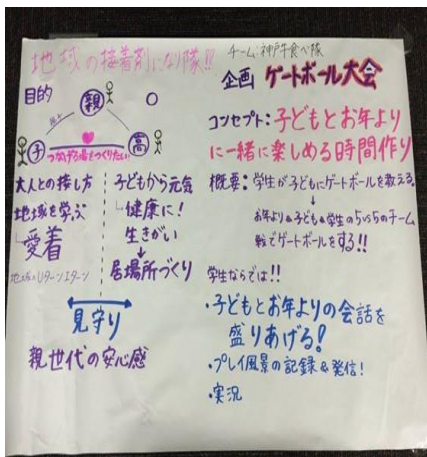 地域の接着剤になり隊!!
チーム:神戸牛食べ隊
目的
親
子
高
つなげる場をつくりたい
大人との接し方
地域を学ぶ
愛着
地域へUターンIターン
子どもから元気
健康に!
生きがい
↓
居場所づくり
見守り
親世代の安心感
企画 ゲートボール大会
コンセプト:子どもとお年より
に一緒に楽しめる時間作り
概要:学生が子どもにゲートボールを教える。
↓
お年より&子ども&学生の5vs5のチーム
戦でゲートボールをする!!
学生ならでは!!
・子どもとお年よりの会話を
盛りあげる!
・プレイ風景の記録&発信!
・実況